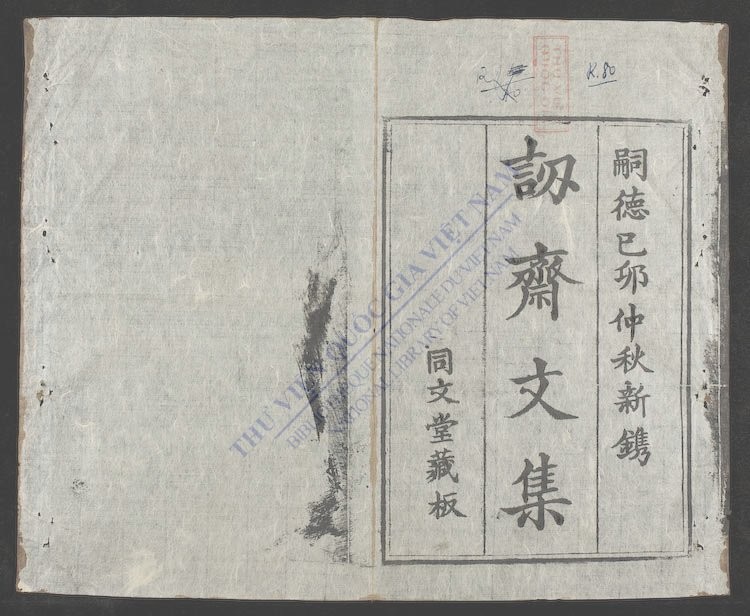 嗣德己卯仲秋新鐫
訒齋文集
同文堂藏板
K.80
THƯ VIỆN QUỐC GIA VIỆT NAM
BIBLIOTHÈQUE NATIONALE DU VIETNAM
NATIONAL LIBRARY OF VIETNAM